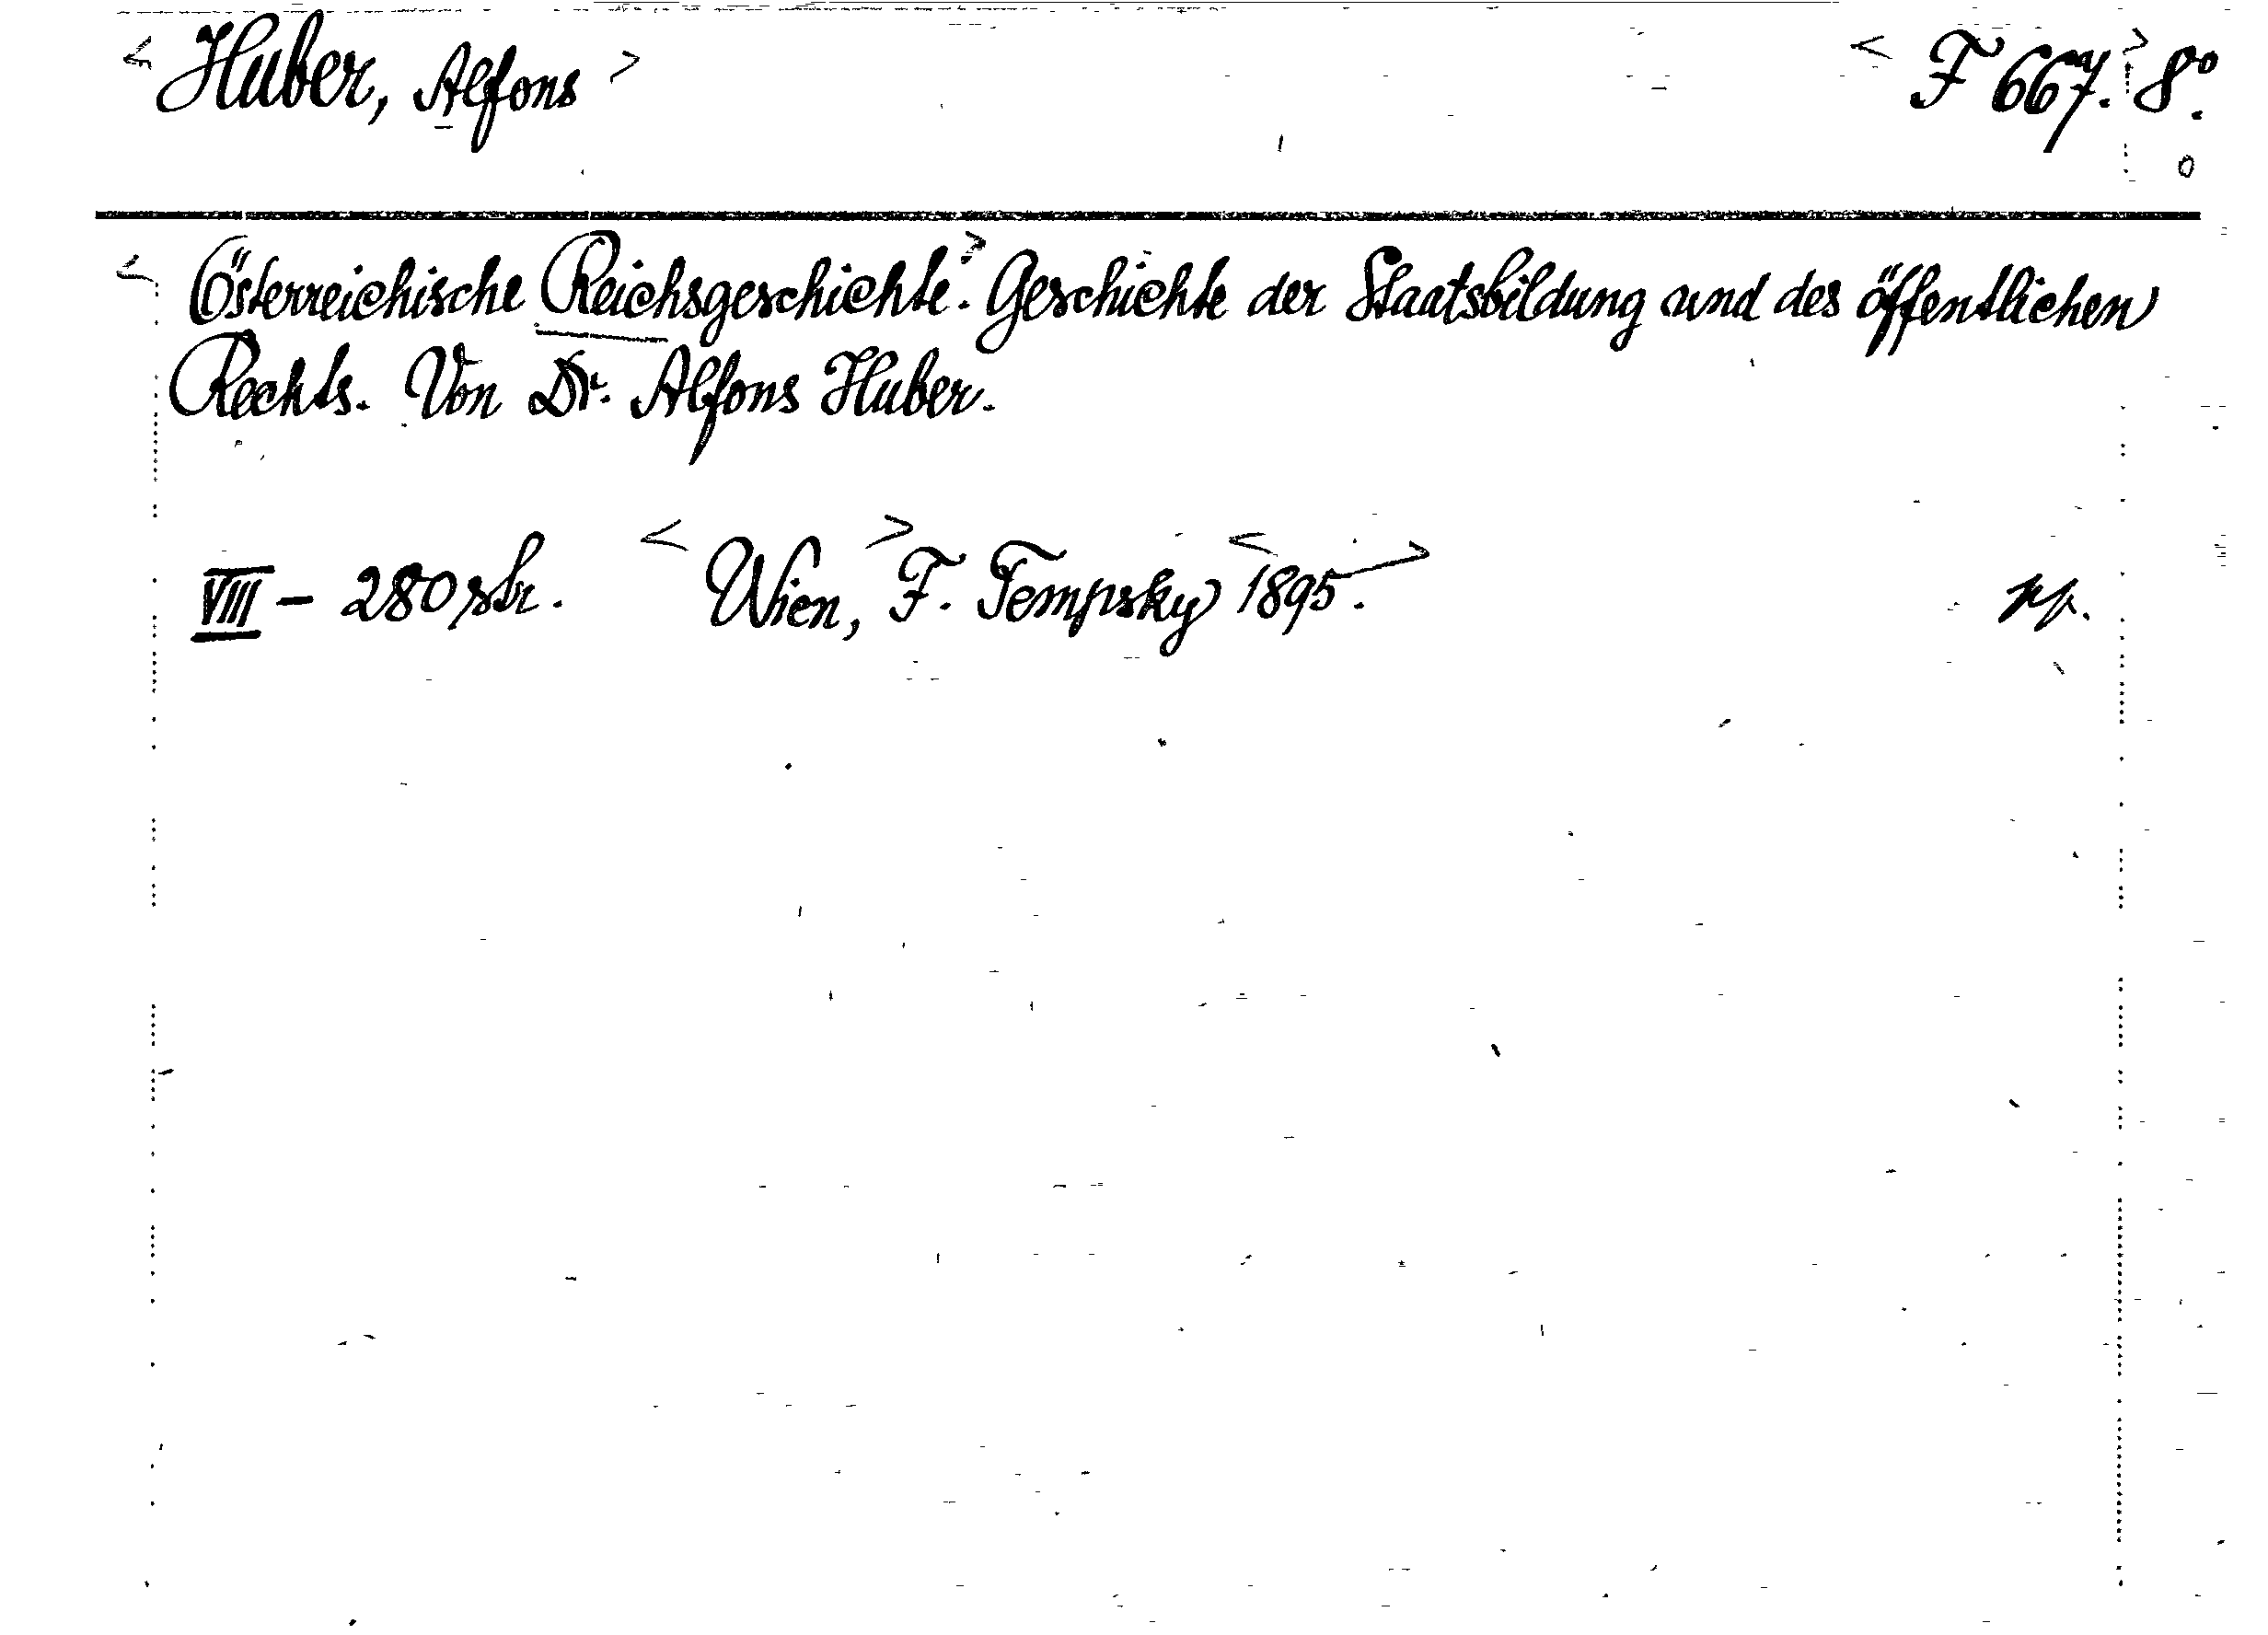 < Huber, Alfons > < F 667. > 8º.
< Österreichische Reichsgeschichte. > Geschichte der Staatsbildung und des öffentlichen
Rechts. Von Dr. Alfons Huber.
VIII - 280 str. < Wien, > F. Tempsky < 1895. >